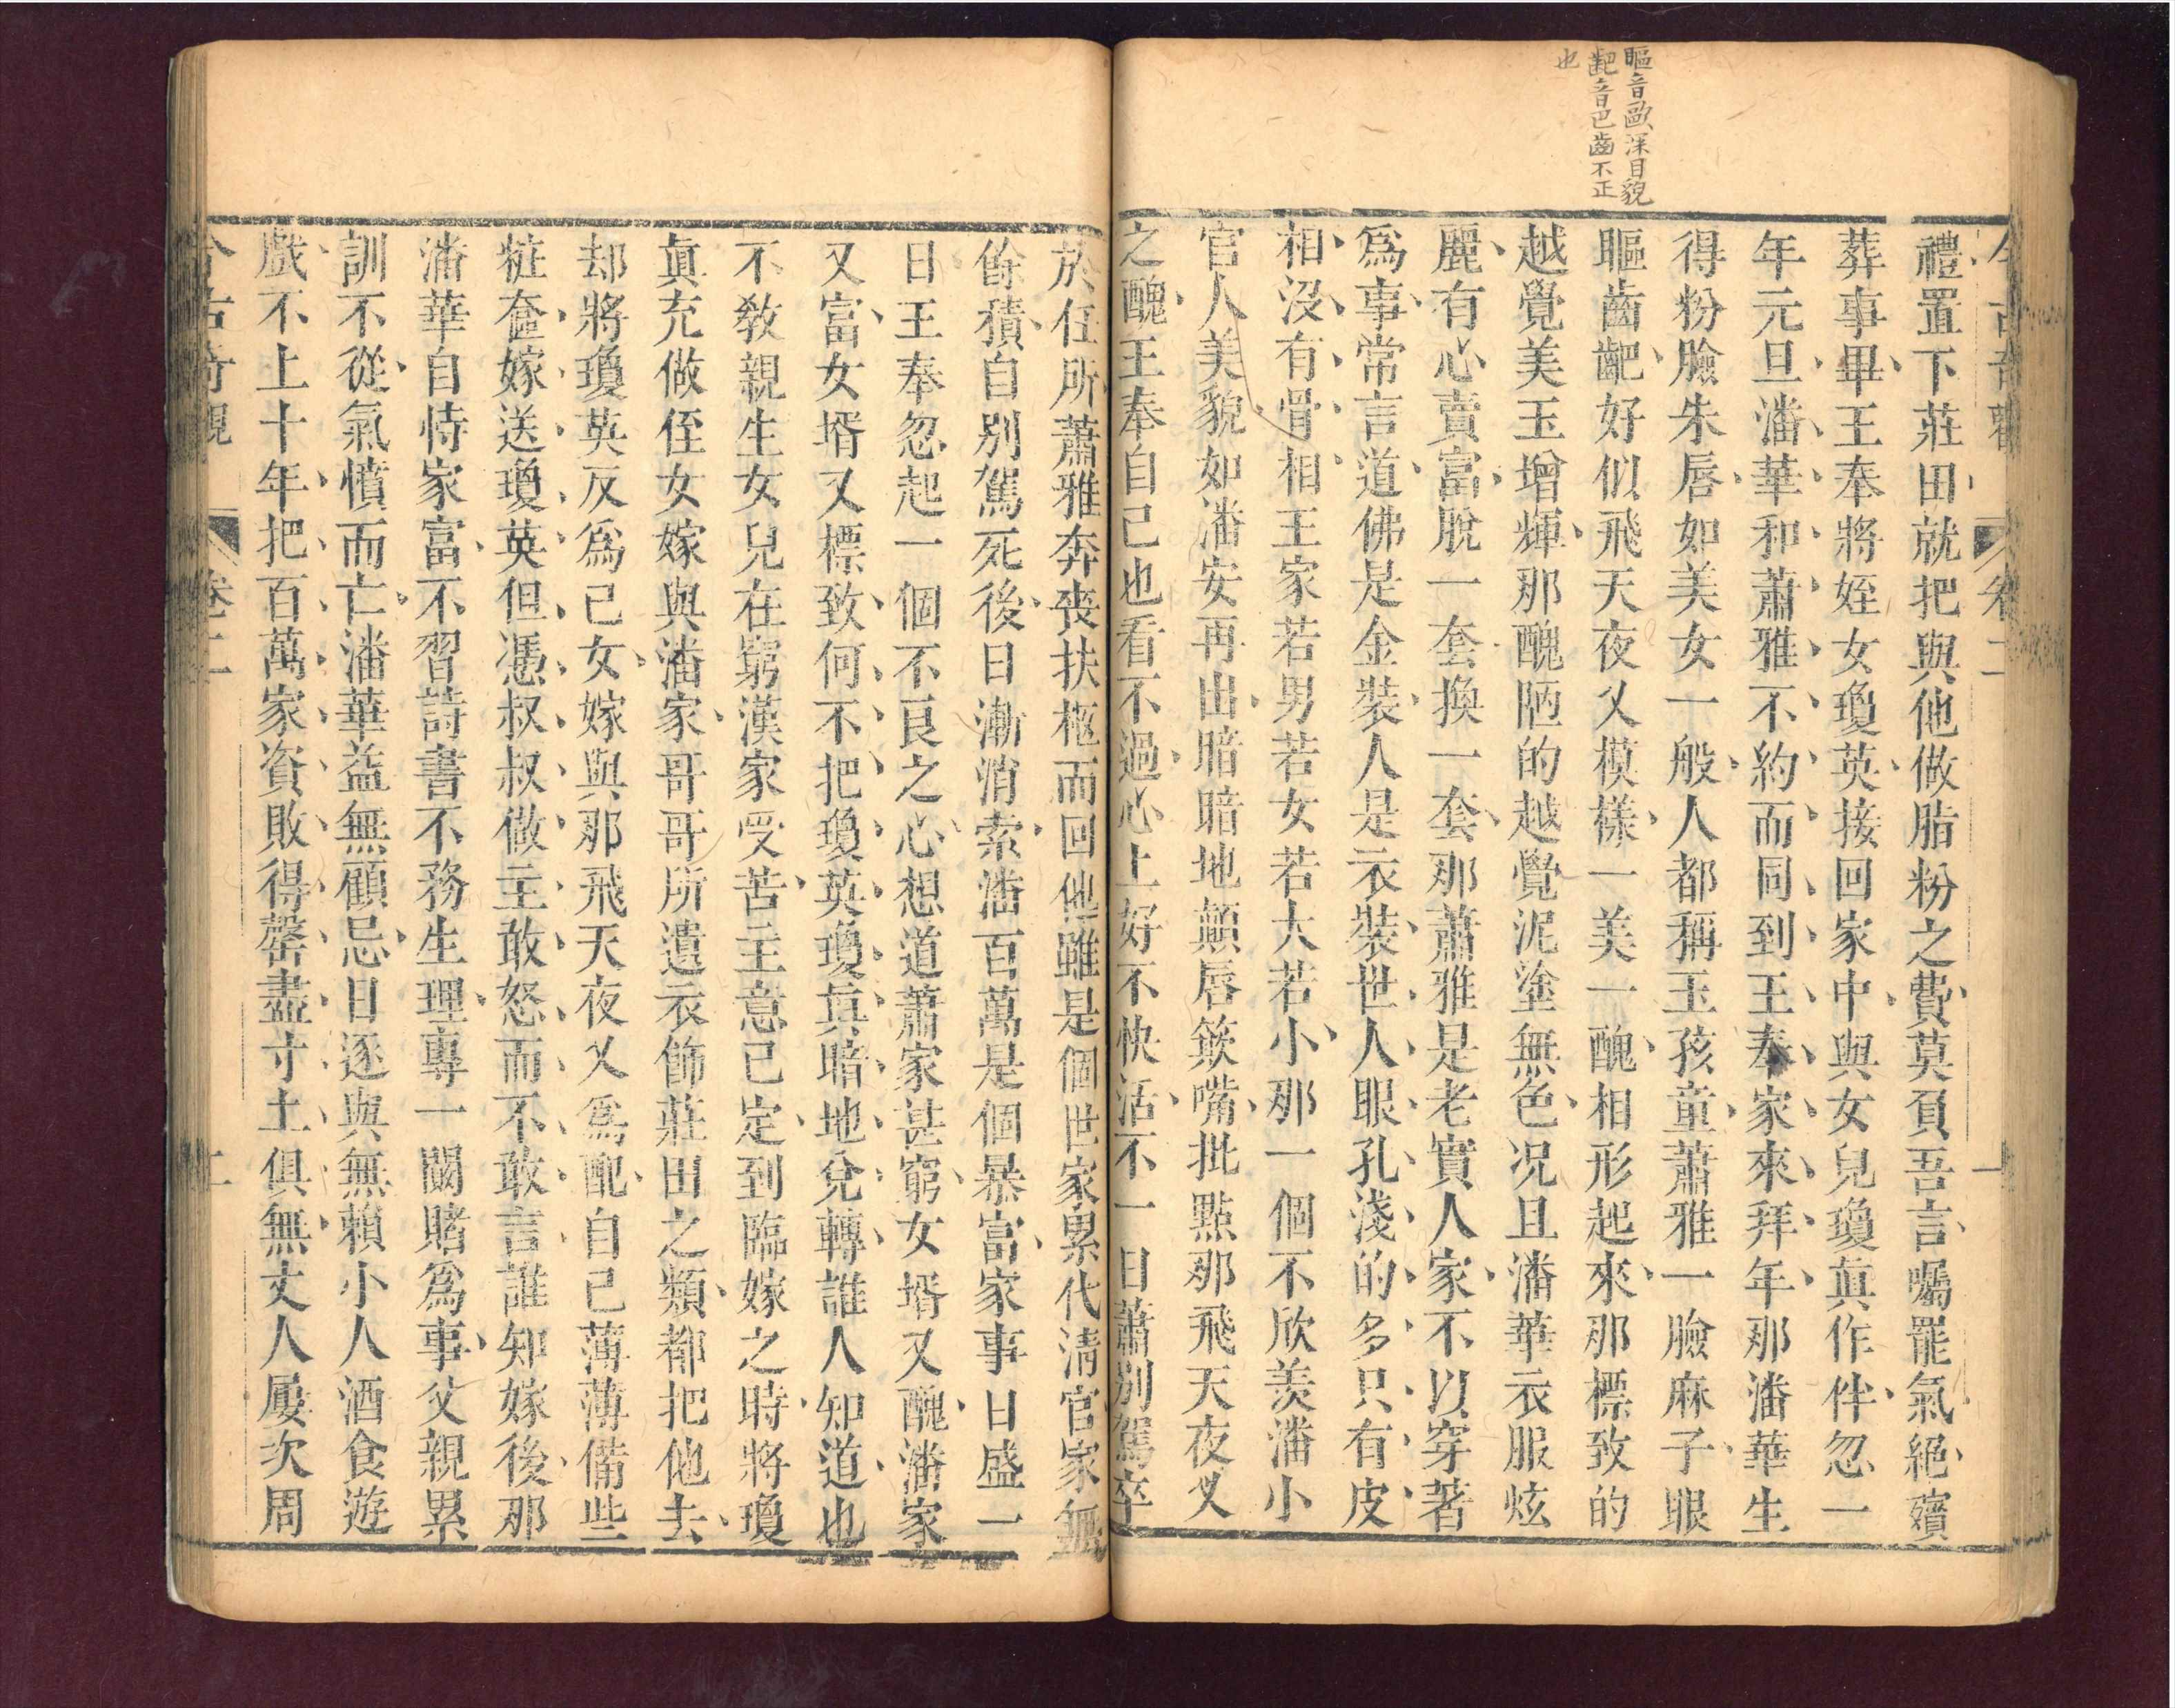 瞘音歐深目貌
齙音巴齒不正
也
禮置下莊田就把與他做脂粉之費莫負吾言囑罷氣絕殯
葬事畢王奉將姪女瓊英接回家中與女兒瓊眞作伴忽一
年元旦潘華和蕭雅不約而同到王奉家來拜年那潘華生
得粉臉朱唇如美女一般人都稱玉孩童蕭雅一臉麻子眼
瞘齒齙好似飛天夜叉模樣一美一醜相形起來那標致的
越覺美玉增輝那醜陋的越覺泥塗無色况且潘華衣服炫
麗有心賣富脫一套換一套那蕭雅是老實人家不以穿著
爲事常言道佛是金裝人是衣裝世人眼孔淺的多只有皮
相没有骨相王家若男若女若大若小那一個不欣羨潘小
官人美貌如潘安再出暗暗地顛唇簸嘴批點那飛天夜叉
之醜王奉自己也看不過心上好不快活不一日蕭別駕卒
於任所蕭雅奔喪扶柩而回他雖是個世家累代清官家無
餘積自別駕死後日漸消索潘百萬是個暴富家事日盛一
日王奉忽起一個不良之心想道蕭家甚窮女壻又醜潘家
又富女壻又標致何不把瓊英瓊眞暗地兌轉誰人知道也
不敎親生女兒在窮漢家受苦主意已定到臨嫁之時將瓊
眞充做侄女嫁與潘家哥哥所遺衣飾莊田之類都把他去
却將瓊英反爲己女嫁與那飛天夜叉爲配自己薄薄備些
粧奩嫁送瓊英但憑叔叔做主敢怒而不敢言誰知嫁後那
潘華自恃家富不習詩書不務生理專一闞賭爲事父親累
訓不從氣憤而亡潘華益無顧忌日逐與無賴小人酒食遊
戲不上十年把百萬家資敗得罄盡寸土俱無丈人屢次周
今古奇觀 卷二 二